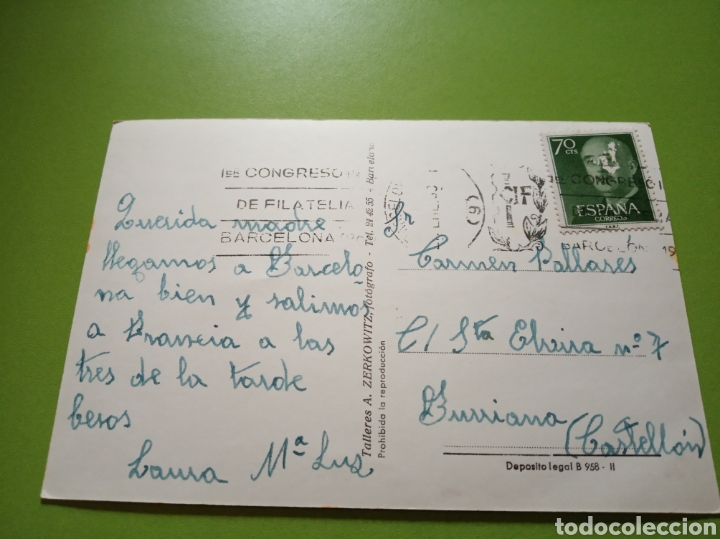 1er CONGRESO
DE FILATELIA
BARCELONA
Querida madre
llegamos a Barcelo
na bien y salimos
a Francia a las
tres de la tarde
besos
Laura Mª Luz
Talleres A. ZERKOWITZ, fotógrafo - Tel. 21 42 55 - Barcelona
Prohibida la reproducción
(9)
70
CTS
ESPAÑA
CORREOS
CONGRESO
BARCELONA
Sr
Carmen Pallares
C/ Sta Elvira nº 7
Burriana
(Castellón)
Deposito legal B 958 - II
todocoleccion